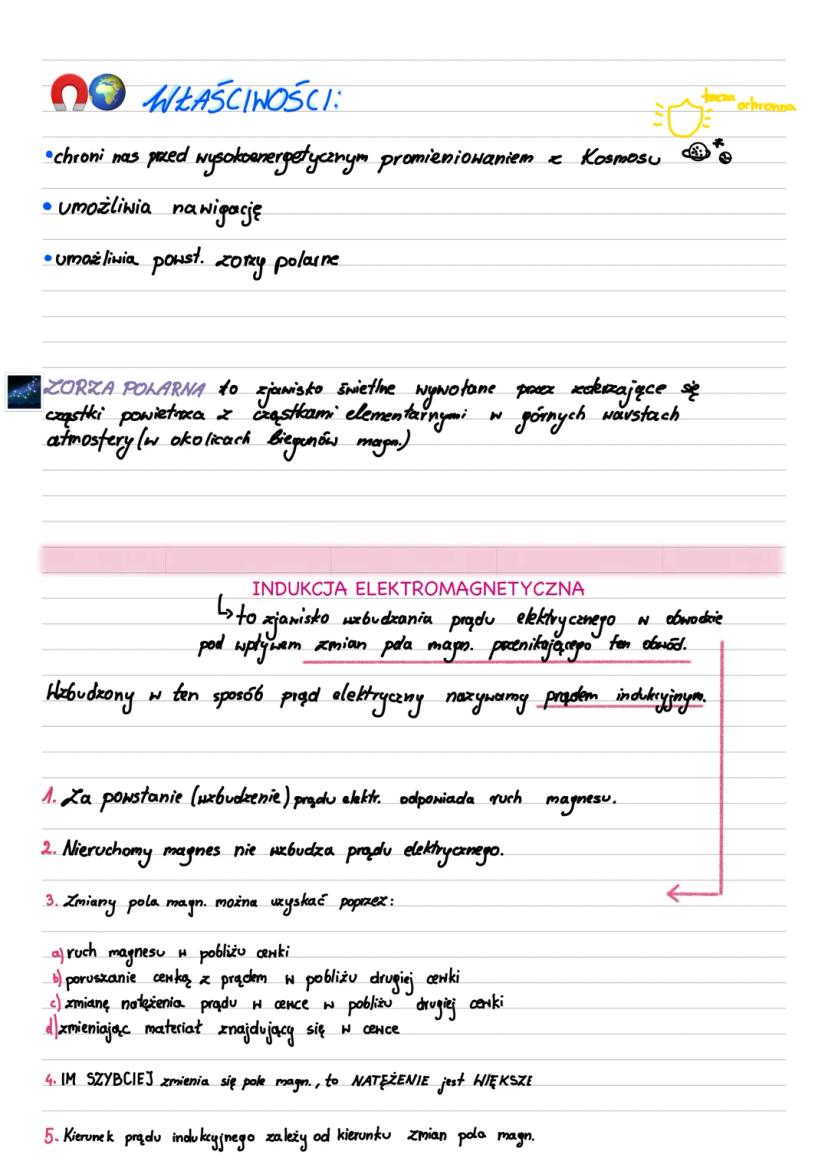 WŁAŚCIWOŚCI:
tarcza ochronna
•chroni nas przed wysokoenergetycznym promieniowaniem z Kosmosu
• umożliwia nawigację
•umożliwia powst. zorzy polarne
ZORZA POLARNA to zjawisko świetlne wywołane przez zderzające się
cząstki powietrza z cząstkami elementarnymi w górnych warstach
atmosfery (w okolicach biegunów magn.)
INDUKCJA ELEKTROMAGNETYCZNA
to zjawisko wzbudzania prądu elektrycznego w obwodzie
pod wpływem zmian pola magn. przenikającego ten obwód.
Wzbudzony w ten sposób prąd elektryczny nazywamy prądem indukcyjnym.
1. Za powstanie (wzbudzenie) prądu elektr. odpowiada ruch magnesu.
2. Nieruchomy magnes nie wzbudza prądu elektrycznego.
3. Zmiany pola magn. można uzyskać poprzez:
a) ruch magnesu w pobliżu cewki
b) poruszanie cewką z prądem w pobliżu drugiej cewki
c) zmianę natężenia prądu w cewce w pobliżu drugiej cewki
d) zmieniając materiał znajdujący się w cewce
4. IM SZYBCIEJ zmienia się pole magn., to NATĘŻENIE jest WIĘKSZE
5. Kierunek prądu indukcyjnego zależy od kierunku zmian pola magn.